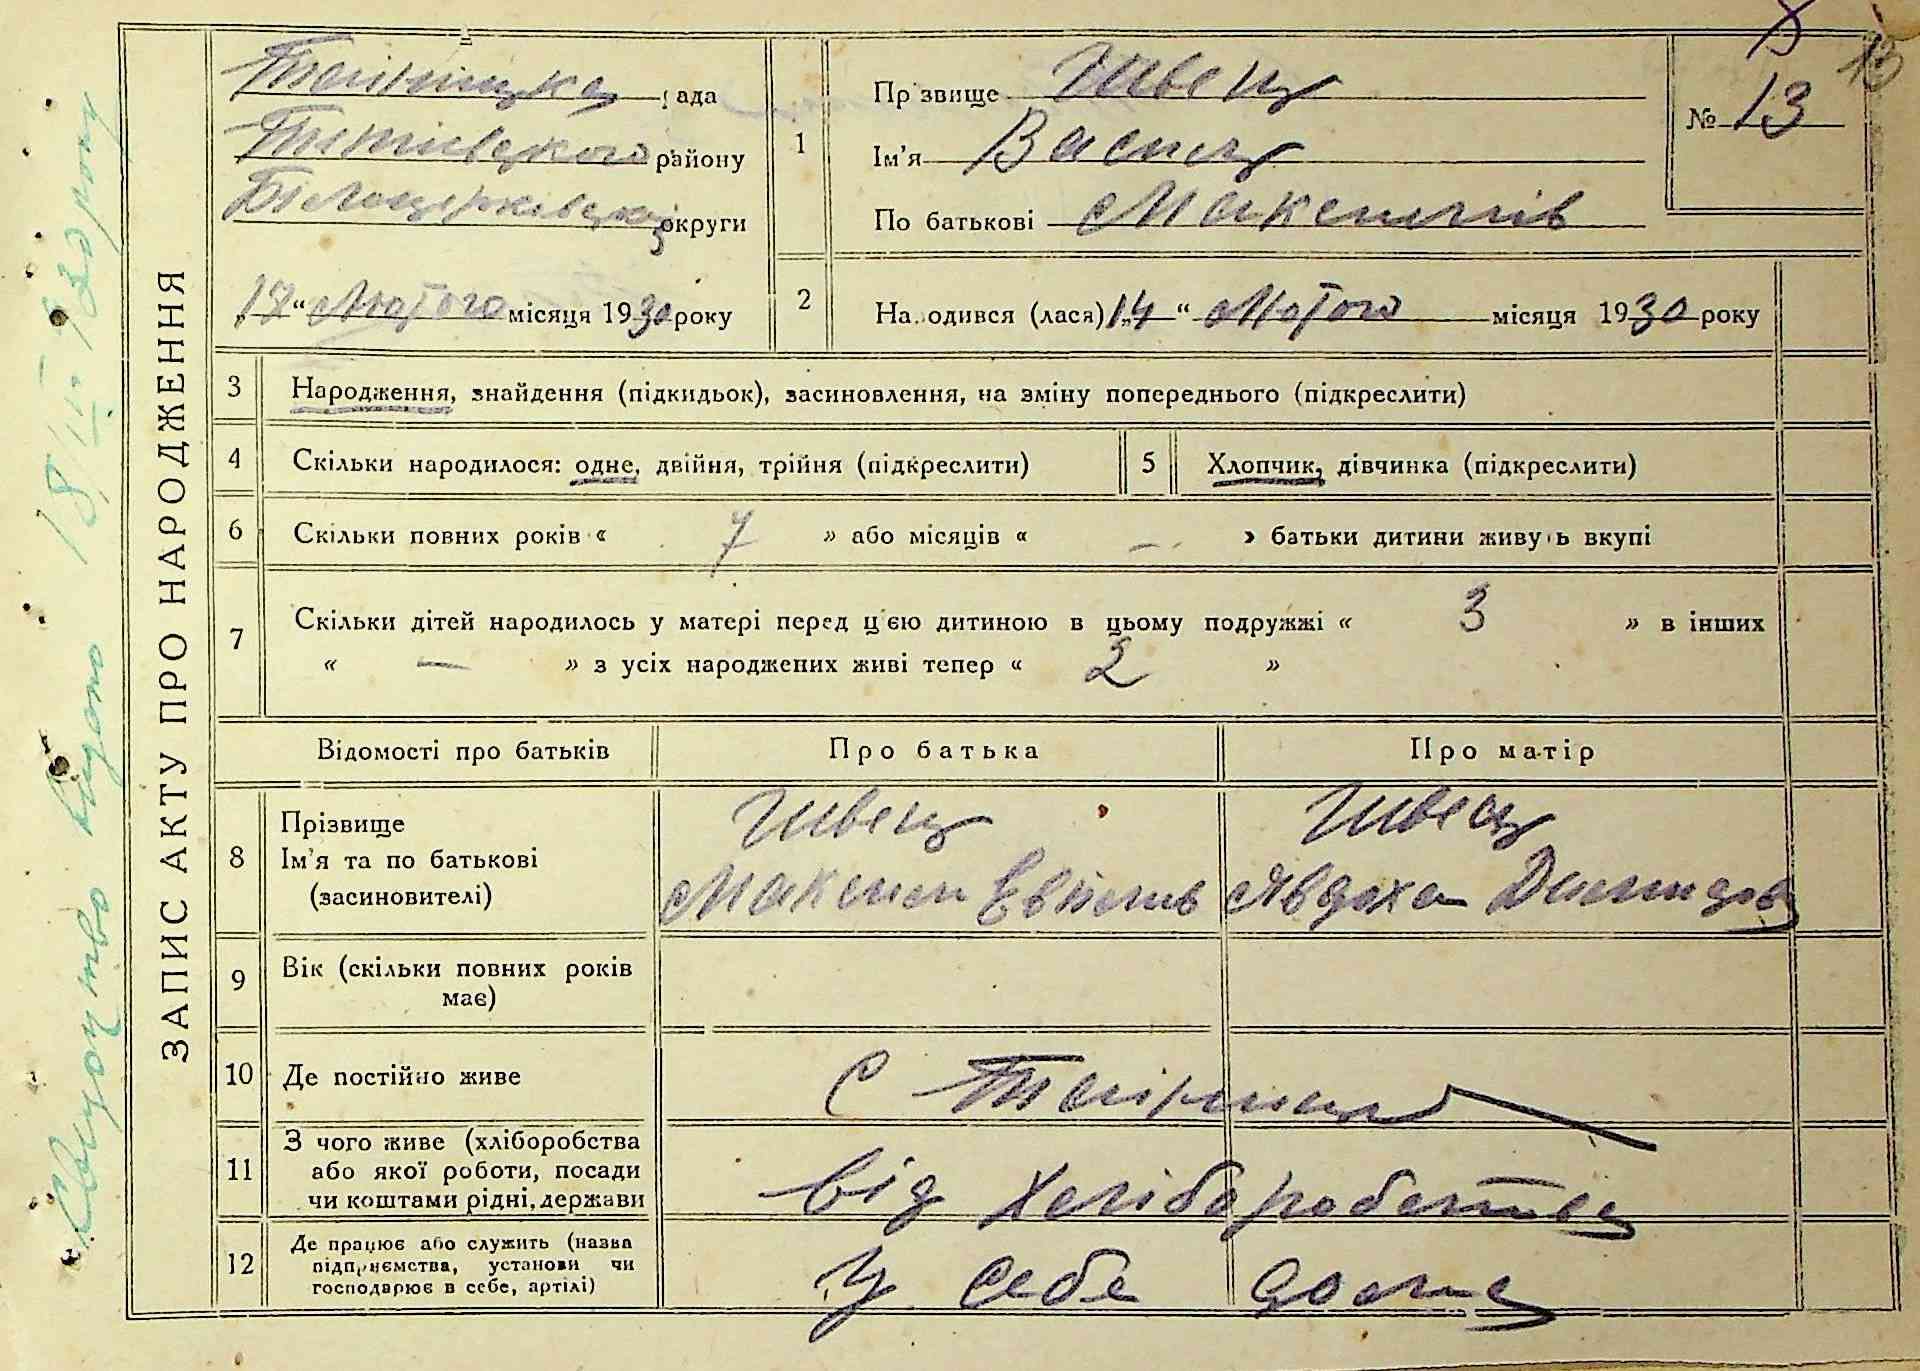 13
ЗАПИС АКТУ ПРО НАРОДЖЕННЯ
рада
Тетіївського району
Білоцерківської округи
18 „ Лютого місяця 1930 року
1
Прізвище Швець
Ім'я Василь
По батькові Максимів
№ 13
2
Народився (лася) „14 “ Лютого місяця 1930 року
3 Народження, знайдення (підкидьок), засиновлення, на зміну попереднього (підкреслити)
4 Скільки народилося: одне, двійня, трійня (підкреслити)
5 Хлопчик, дівчинка (підкреслити)
6 Скільки повних років « 7 » або місяців « — » батьки дитини живуть вкупі
7 Скільки дітей народилось у матері перед цією дитиною в цьому подружжі « 3 » в інших
« — » з усіх народжених живі тепер « 2 »
Відомості про батьків Про батька Про матір
8 Прізвище
Ім'я та по батькові
(засиновителі)
Швець
Максим
Швець
Явдоха
9 Вік (скільки повних років
має)
10 Де постійно живе
с
11 З чого живе (хліборобства
або якої роботи, посади
чи коштами рідні, держави
від хліборобства
12 Де працює або служить (назва
підприємства, установи чи
господарює в себе, артілі)
У себе дома
Свідоцтво видано 18/II 1930 року